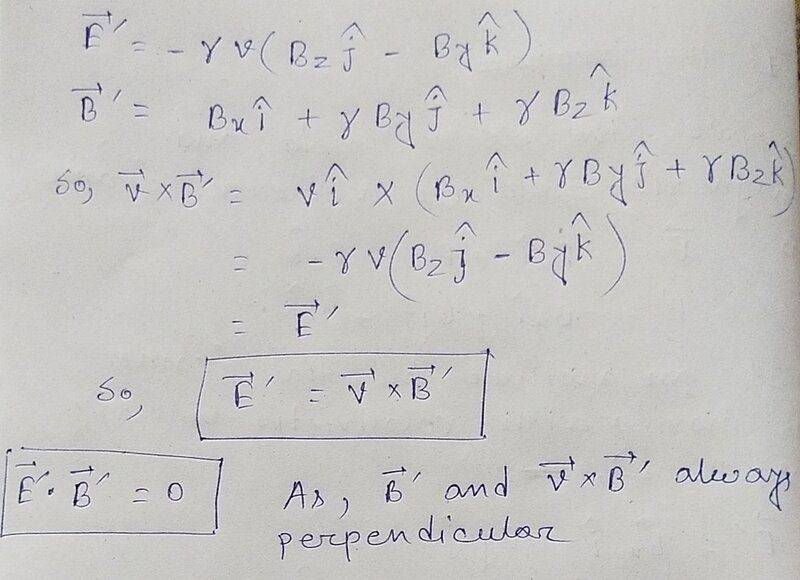 E⃗′ = - γ v ( B_z ĵ - B_y k̂ )
B⃗′ = B_x î + γ B_y ĵ + γ B_z k̂
So, v⃗ × B⃗′ = v î × ( B_x î + γ B_y ĵ + γ B_z k̂ )
= - γ v ( B_z ĵ - B_y k̂ )
= E⃗′
So, E⃗′ = v⃗ × B⃗′
E⃗′ · B⃗′ = 0 As, B⃗′ and v⃗ × B⃗′ always
perpendicular